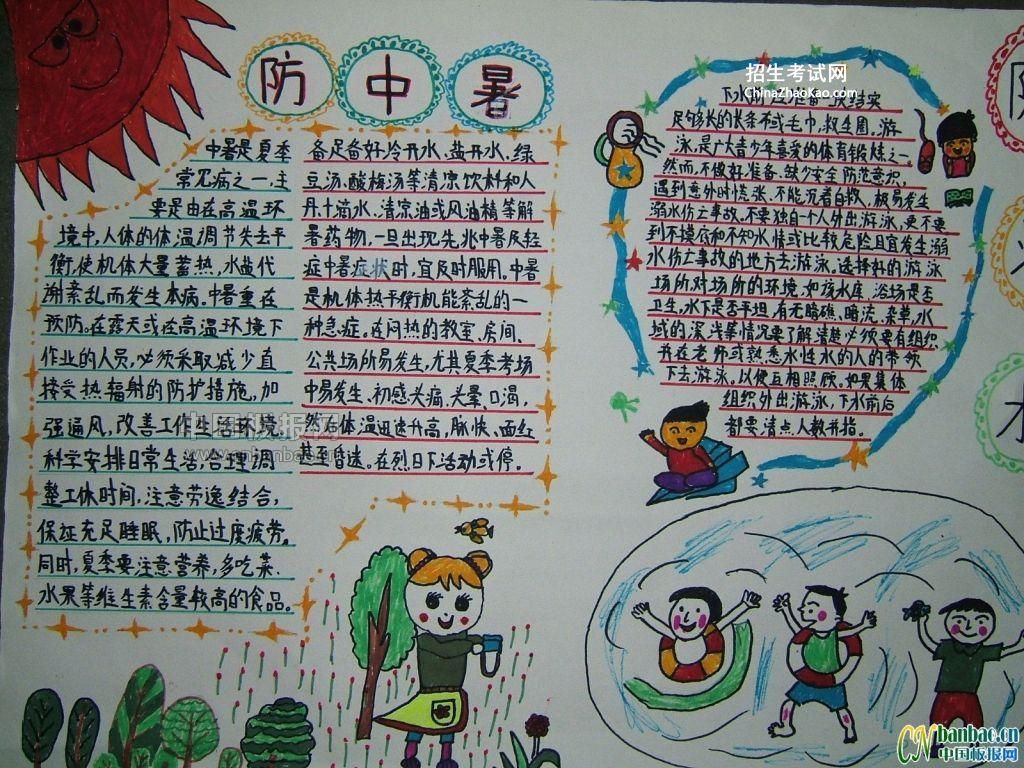 防中暑
中暑是夏季
常见病之一,主
要是由在高温环
境中,人体的体温调节失去平
衡,使机体大量蓄热,水盐代
谢紊乱而发生本病。中暑重在
预防。在露天或在高温环境下
作业的人员,必须采取减少直
接受热辐射的防护措施,加
强通风,改善工作生活环境,
科学安排日常生活,合理调
整工休时间,注意劳逸结合,
保证充足睡眠,防止过度疲劳。
同时,夏季要注意营养,多吃菜、
水果等维生素含量较高的食品。
备足备好冷开水、盐开水、绿
豆汤、酸梅汤等清凉饮料和人
丹、十滴水、清凉油或风油精等解
暑药物,一旦出现先兆中暑及轻
症中暑症状时,宜及时服用。中暑
是机体热平衡机能紊乱的一
种急症。在闷热的教室、房间、
公共场所易发生,尤其夏季考场
中易发生、初感头痛、头晕、口渴,
然后体温迅速升高,脉快、面红
甚至昏迷。在烈日下活动或停。
招生考试网
ChinaZhaoKao.com
足够长的长条布或毛巾,救生圈,游
泳,是广大青少年喜爱的体育锻炼之一,
然而,不做好准备、缺少安全防范意识,
遇到意外时慌张、不能沉着自救,极易发生
溺水伤亡事故。不要独自一个人外出游泳,更不要
到不摸底和不知水情或比较危险且宜发生溺
水伤亡事故的地方去游泳。选择好的游泳
场所,对场所的环境,如该水库、浴场是否
卫生,水下是否平坦,有无暗礁、暗流、杂草,水
域的深、浅等情况要了解清楚必须要有组织
并在老师或熟悉水性水的人的带领
下去游泳。以便互相照顾。如果集体
组织外出游泳,下水前后
都要清点人数并指。
中国板报网
www.cnbanbao.cn
CN banbao.cn
中国板报网